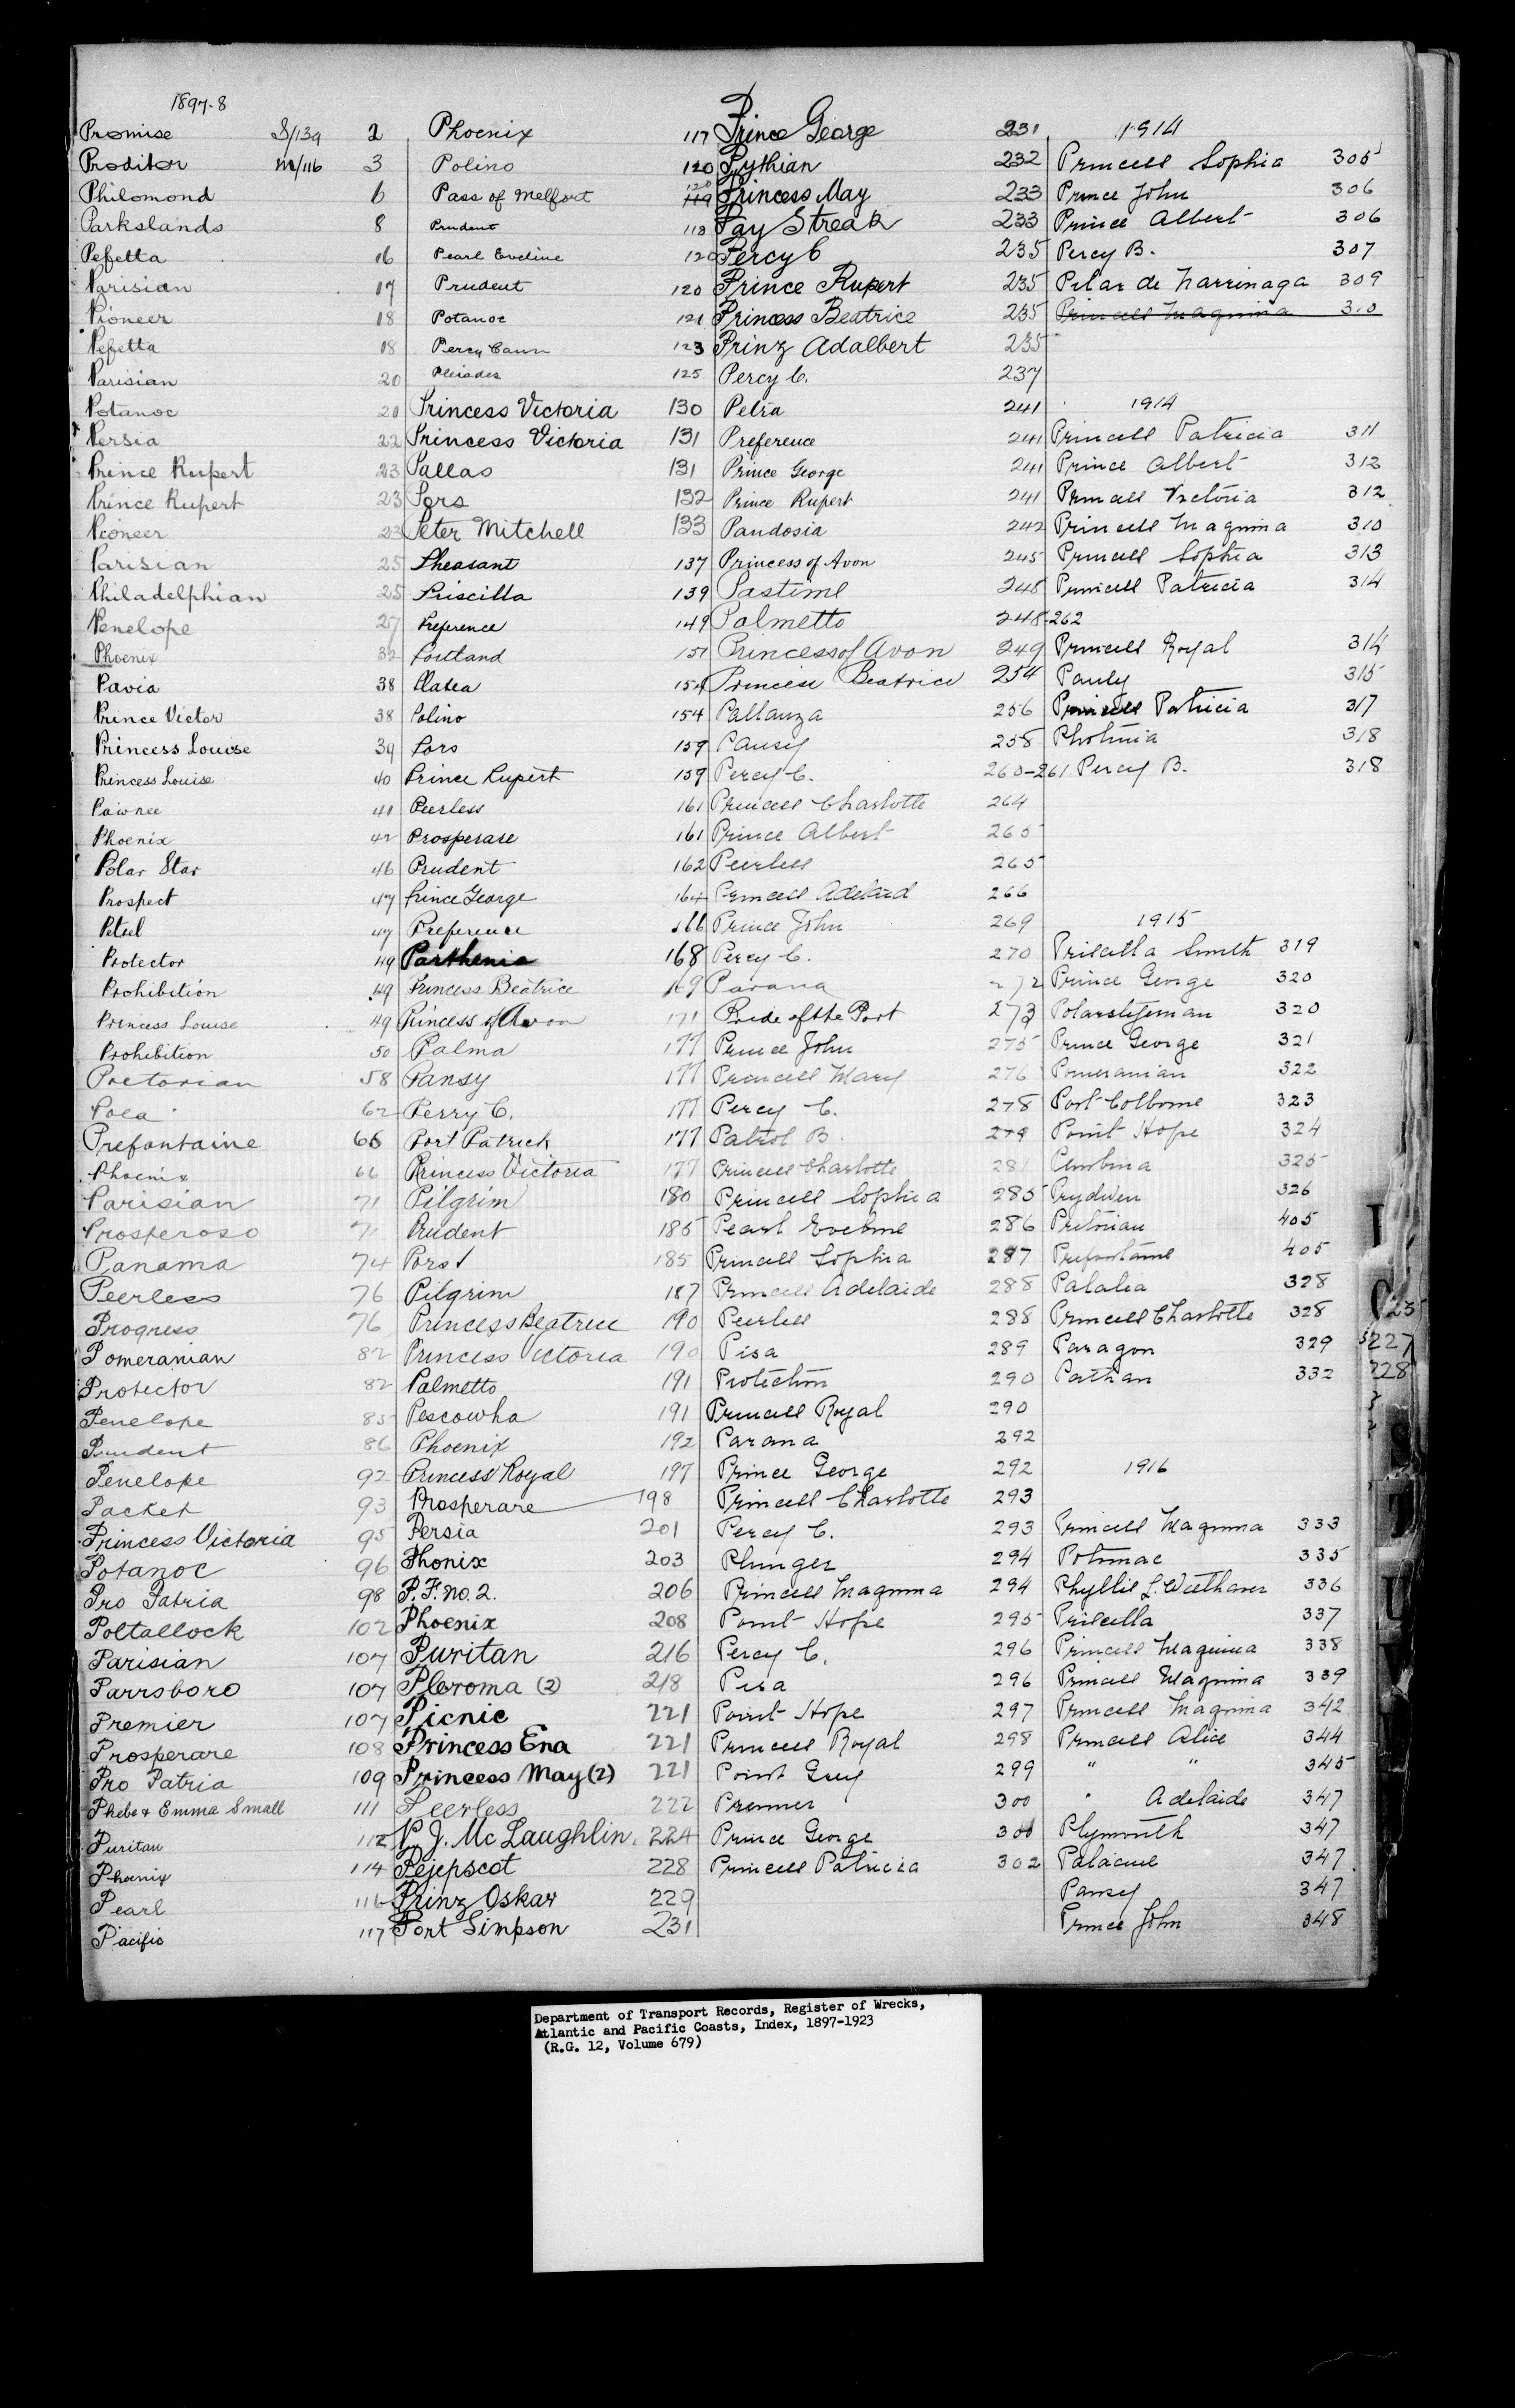 P
1897-8
Promise S/139 2
Proditor M/116 3
Philomond 6
Parkslands 8
Pefetta 16
Parisian 17
Pioneer 18
Pefetta 18
Parisian 20
Potanoc 20
Persia 22
Prince Rupert 23
Prince Rupert 23
Pioneer 23
Parisian 25
Philadelphian 25
Penelope 27
Phoenix 32
Pavia 38
Prince Victor 38
Princess Louise 39
Princess Louise 40
Pawnee 41
Phoenix 42
Polar Star 46
Prospect 47
Petrel 47
Protector 49
Prohibition 49
Princess Louise 49
Prohibition 50
Pretorian 58
Pola 62
Prefontaine 66
Phoenix 66
Parisian 71
Prosperoso 71
Panama 74
Peerless 76
Progress 76
Pomeranian 82
Protector 82
Penelope 85
Prudent 86
Penelope 92
Packet 93
Princess Victoria 95
Potanoc 96
Pro Patria 98
Poltallock 102
Parisian 107
Parrsboro 107
Premier 107
Prosperare 108
Pro Patria 109
Phebe & Emma Small 111
Puritan 112
Phoenix 114
Pearl 116
Pacific 117
Phoenix 117
Polino 120
Pass of Melfort 120 119
Prudent 118
Pearl Eveline 120
Prudent 120
Potanoc 121
Percy Cann 123
Pleiades 125
Princess Victoria 130
Princess Victoria 131
Pallas 131
Pors 132
Peter Mitchell 133
Pheasant 137
Priscilla 139
Preference 149
Portland 151
Platea 154
Polino 154
Pors 159
Prince Rupert 159
Peerless 161
Prosperare 161
Prudent 162
Prince George 164
Preference 166
Parthenia 168
Princess Beatrice 169
Princess of Avon 171
Palma 177
Pansy 177
Perry C. 177
Port Patrick 177
Princess Victoria 177
Pilgrim 180
Prudent 185
Pors 185
Pilgrim 187
Princess Beatrice 190
Princess Victoria 190
Palmetto 191
Pescowha 191
Phoenix 192
Princess Royal 197
Prosperare 198
Persia 201
Phonix 203
P.F. No. 2. 206
Phoenix 208
Puritan 216
Pleroma (2) 218
Picnic 221
Princess Ena 221
Princess May (2) 221
Peerless 222
P. J. McLaughlin. 224
Pejepscot 228
Prinz Oskar 229
Port Simpson 231
Prince George 231
Pythian 232
Princess May 233
Pay Streak 233
Percy C 235
Prince Rupert 235
Princess Beatrice 235
Prinz Adalbert 235
Percy C. 237
Petra 241
Preference 241
Prince George 241
Prince Rupert 241
Pandosia 242
Princess of Avon 245
Pastime 245
Palmetto 248-262
Princess of Avon 249
Princess Beatrice 254
Pallanza 256
Pansy 258
Percy C. 260-261
Princess Charlotte 264
Prince Albert 265
Peerless 265
Princess Adelaid 266
Prince John 269
Percy C. 270
Parana 272
Pride of the Port 273
Prince John 275
Princess Mary 276
Percy C. 278
Patrol B. 279
Princess Charlotte 281
Princess Sophia 285
Pearl Eveline 286
Princess Sophia 287
Princess Adelaide 288
Peerless 288
Pisa 289
Protection 290
Princess Royal 290
Parana 292
Prince George 292
Princess Charlotte 293
Percy C. 293
Plunger 294
Princess Maquinna 294
Point Hope 295
Percy C. 296
Pisa 296
Point Hope 297
Princess Royal 298
Point Grey 299
Premier 300
Prince George 300
Princess Patricia 302
1914
Princess Sophia 305
Prince John 306
Prince Albert 306
Percy B. 307
Pilar de Larrinaga 309
Princess Maquinna 310
1914
Princess Patricia 311
Prince Albert 312
Princess Victoria 312
Princess Maquinna 310
Princess Sophia 313
Princess Patricia 314
Princess Royal 314
Pauly 315
Princess Patricia 317
Photinia 318
Percy B. 318
1915
Priscilla Smith 319
Prince George 320
Polarstjernan 320
Prince George 321
Pomeranian 322
Port Colborne 323
Point Hope 324
Pembina 325
Prydwen 326
Pretorian 405
Prefontaine 405
Palatia 328
Princess Charlotte 328
Paragon 329
Pathan 332
1916
Princess Maquinna 333
Potomac 335
Phyllis L. 336
Priscilla 337
Princess Maquinna 338
Princess Maquinna 339
Princess Maquinna 342
Princess Alice 344
" " 345
" Adelaide 347
Plymouth 347
347
Pansy 347
Prince John 348
Department of Transport Records, Register of Wrecks,
Atlantic and Pacific Coasts, Index, 1897-1923
(R.G. 12, Volume 679)